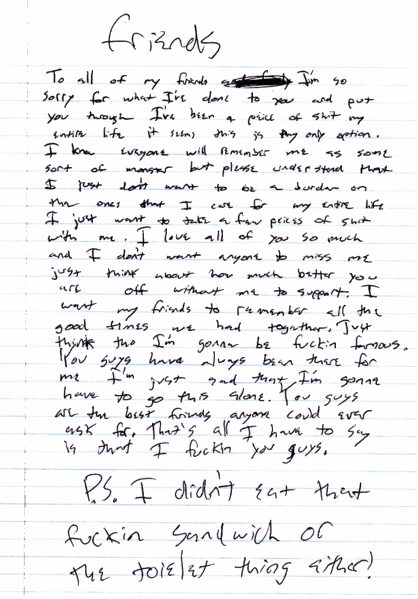 friends
To all of my friends I'm so
sorry for what I've done to you and put
you through I've been a peice of shit my
entire life it seems this is my only option.
I know everyone will remember me as some
sort of monster but please understand that
I just don't want to be a burdan on
the ones that I care for my entire life
I just want to take a few peices of shit
with me. I love all of you so much
and I don't want anyone to miss me
just think about how much better you
are off without me to support. I
want my friends to remember all the
good times we had together. Just
think tho I'm gonna be fuckin famous.
You guys have always been there for
me I'm just sad that I'm gonna
have to go this alone. You guys
are the best friends anyone could ever
ask for. That's all I have to say
is that I fuckin you guys.
P.S. I didn't eat that
fuckin sandwich or
the toielet thing either!